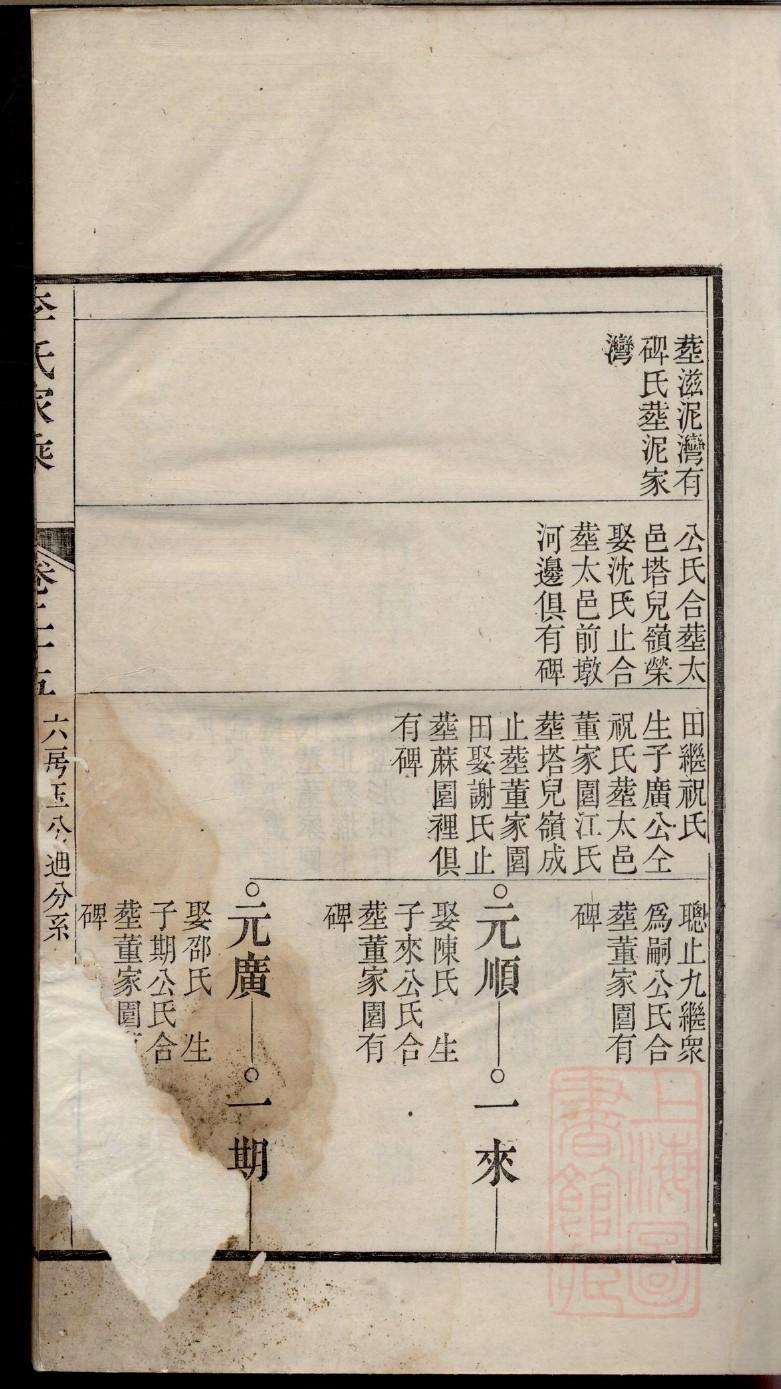 塟滋泥灣有
碑氏塟泥家
灣
公氏合塟太
邑塔兒嶺榮
娶沈氏止合
塟太邑前墩
河邊俱有碑
田繼祝氏
生子廣公仝
祝氏塟太邑
董家園江氏
塟塔兒嶺成
止塟董家園
田娶謝氏止
塟蔴園裡俱
有碑
聰止九繼衆
爲嗣公氏合
塟董家園有
碑
元順
一來
娶陳氏 生
子來公氏合
塟董家園有
碑
元廣
一期
娶邵氏 生
子期公氏合
塟董家園
碑
李氏家乘
卷二十五
六房玉公迪分系
上海圖
書館藏